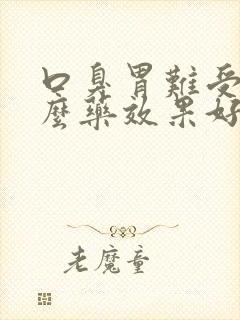 口臭胃難受
麼藥效果好
老魔童